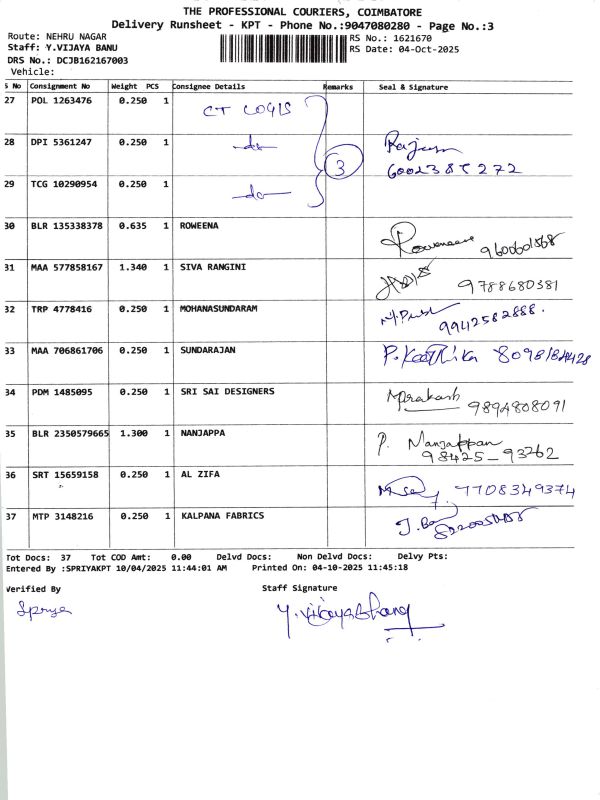 THE PROFESSIONAL COURIERS, COIMBATORE
Delivery Runsheet - KPT - Phone No.:9047080280 - Page No.:3
Route: NEHRU NAGAR
RS No.: 1621670
Staff: Y.VIJAYA BANU
RS Date: 04-Oct-2025
DRS No.: DCJB162167003
Vehicle:
S No Consignment No Weight PCS Consignee Details Remarks Seal & Signature
27 POL 1263476 0.250 1 CT LOGIS
28 DPI 5361247 0.250 1 -do- 3
29 TCG 10290954 0.250 1 -do-
30 BLR 135338378 0.635 1 ROWEENA
31 MAA 577858167 1.340 1 SIVA RANGINI 9788680381
32 TRP 4778416 0.250 1 MOHANASUNDARAM 9942582888.
33 MAA 706861706 0.250 1 SUNDARAJAN
34 PDM 1485095 0.250 1 SRI SAI DESIGNERS Mprakash 9894808091
35 BLR 2350579665 1.300 1 NANJAPPA P. Manjappan
98425-93262
36 SRT 15659158 0.250 1 AL ZIFA 7708349374
37 MTP 3148216 0.250 1 KALPANA FABRICS
Tot Docs: 37 Tot COD Amt: 0.00 Delvd Docs: Non Delvd Docs: Delvy Pts:
Entered By :SPRIYAKPT 10/04/2025 11:44:01 AM Printed On: 04-10-2025 11:45:18
Verified By Staff Signature